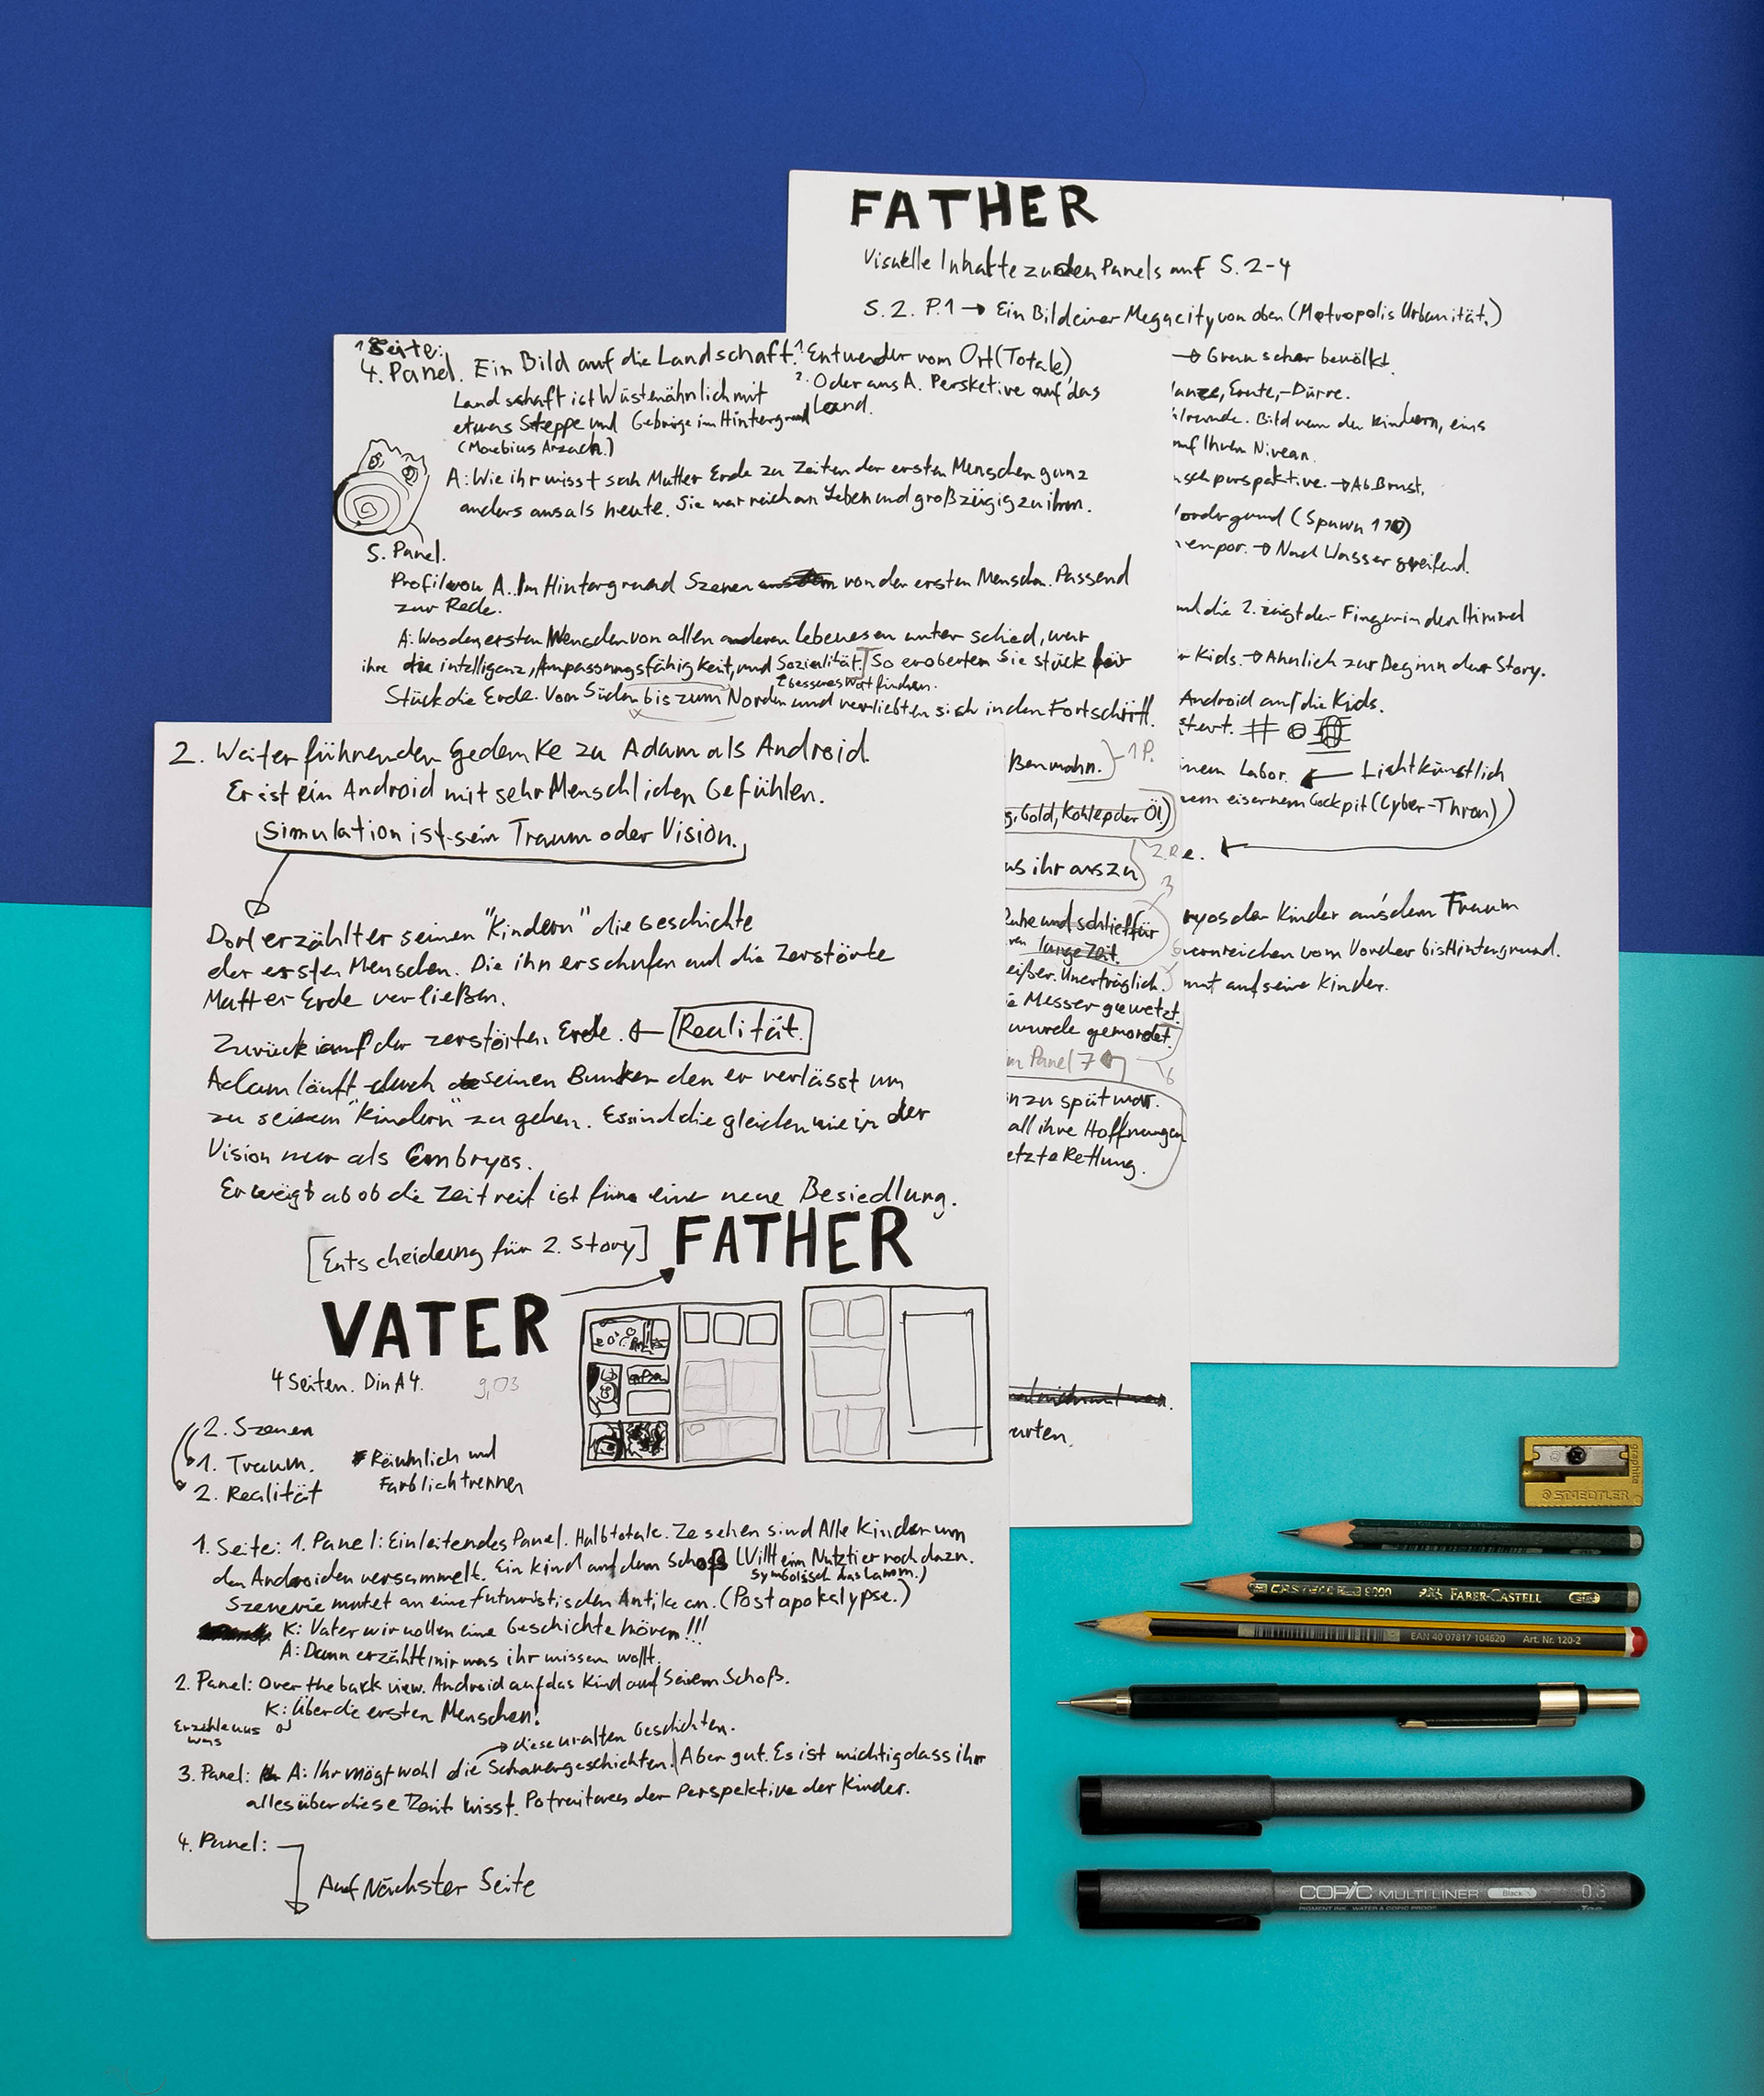 FATHER
Visuelle Inhalte zu den Panels auf S. 2-4
S. 2. P.1 → Ein Bild einer Megacity von oben (Metropolis Urbanität.)
→ Grau schar bevölkt.
Ernte,-Dürre.
Bild von den Kindern, eins
auf Ihren Niveau.
perspektive. → Ab Brust,
(Spawn 170)
empor. → Nach Wasser greifend.
und die 2. zeigt der Finger in den Himmel
Kids. → Ähnlich zur Beginn der Story.
Android auf die Kids.
start. #
Labor. ← Licht künstlich
eisernem Cockpit (Cyber-Thron)
e. ←
ryos der Kinder aus dem Traum
vom Vorder bis Hintergrund.
mut auf seine Kinder.
1 Seite:
4. Panel. Ein Bild auf die Landschaft. 1. Entweder vom Ort (Totale),
Landschaft ist Wüstenähnlich mit 2. Oder aus A. Persketive auf das
etwas Steppe und Gebirge im Hintergrund Land.
(Moebius Arzach.)
A: Wie ihr wisst sah Mutter Erde zu Zeiten der ersten Menschen ganz
anders aus als heute. Sie war reich an Leben und großzügig zu ihnen.
5. Panel.
Profil von A. Im Hintergrund Szenen von den ersten Menschen. Passend
zur Rede.
A: Was den ersten Menschen von allen anderen Lebewesen unter schied, war
ihre die intelligenz, Anpassungsfähigkeit, und Sozialität. So eroberten Sie stück für
besseres Wort finden.
Stück die Erde. Vom Süden bis zum Norden und verliebten sich in den Fortschritt.
1P.
g, Gold, Kohle, oder Öl)
2.P.
us ihr auszu
3
Ruhe und schlief für
lange Zeit.
eißer. Unerträglich.
ie Messer gewetzt
wurde gemordet.
im Panel 7
6
n zu spät war.
all ihre Hoffnungen
etzte Rettung.
arten.
2. Weiterführenden Gedanke zu Adam als Android.
Er ist ein Android mit sehr Menschlichen Gefühlen.
Simulation ist sein Traum oder Vision.
Dort erzählt er seinen "Kindern" die Geschichte
der ersten Menschen. Die ihn erschufen und die Zerstörte
Mutter Erde verließen.
Zurück auf der zerstörten Erde. ← Realität.
Adam läuft durch seinen Bunker den er verlässt um
zu seinen "Kindern" zu gehen. Es sind die gleichen wie in der
Vision nur als Embryos.
Er weigt ab ob die Zeit reif ist für eine neue Besiedlung.
[Entscheidung für 2. Story] FATHER
VATER
4 Seiten. Din A4. 9,03
2. Szenen
1. Traum. Räumlich und
2. Realität Farblich trennen
1. Seite: 1. Panel: Einleitendes Panel. Halbtotale. Ze sehen sind Alle Kinder um
den Androiden versammelt. Ein Kind auf dem Schoß (Villt ein Nutztier noch dazu.
Symbolisch das Lamm.)
Szenerie mutet an eine futuristischen Antike an. (Postapokalypse.)
K: Vater wir wollen eine Geschichte hören!!!
A: Dann erzählt mir was ihr wissen wollt.
2. Panel: Over the back view. Android auf das Kind auf Seinem Schoß.
K: Über die ersten Menschen!
Erzähle uns
was
→ diese uralten Geschichten.
3. Panel: A: Ihr mögt wohl die Schauergeschichten. Aber gut. Es ist wichtig dass ihr
alles über diese Zeit wisst. Potrait aus der Perspektive der Kinder.
4. Panel:
Auf Nächster Seite
graphite
STAEDTLER
CASTELL 9000 FABER-CASTELL
EAN 40 07817 104620 Art. Nr. 120-2
COPIC MULTILINER Black 0.3
PIGMENT INK. WATER & COPIC PROOF.